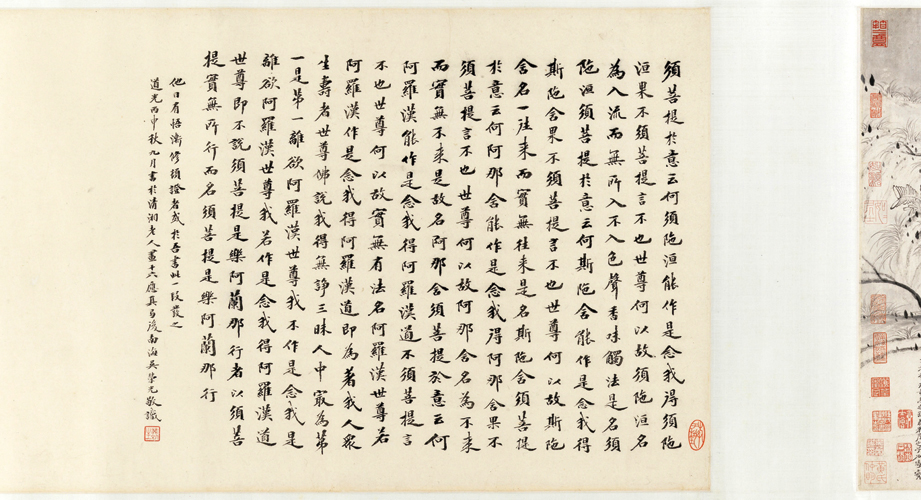 須菩提於意云何須陁洹能作是念我得須陁
洹果不須菩提言不也世尊何以故須陁洹名
為入流而無所入不入色聲香味觸法是名須
陁洹須菩提於意云何斯陁含能作是念我得
斯陁含果不須菩提言不也世尊何以故斯陁
含名一往来而實無往来是名斯陁含須菩提
於意云何阿那含能作是念我得阿那含果不
須菩提言不也世尊何以故阿那含名為不来
而實無不来是故名阿那含須菩提於意云何
阿羅漢能作是念我得阿羅漢道不須菩提言
不也世尊何以故實無有法名阿羅漢世尊若
阿羅漢作是念我得阿羅漢道即為著我人衆
生壽者世尊佛說我得無諍三昧人中寂為苐
一是苐一離欲阿羅漢世尊我不作是念我是
離欲阿羅漢世尊我若作是念我得阿羅漢道
世尊即不說須菩提是樂阿蘭那行者以須菩
提實無所行而名須菩提是樂阿蘭那行
他日有悟濟修頭證者感於吾書此一段發之
道光丙申秋九月書於清湘老人畫十六應真弓後南海吳榮光敬識